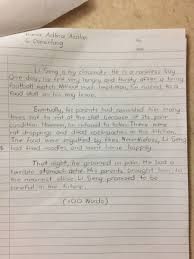 Li Seng is my classmate. He is a careless boy.
One day, he felt very hungry and thirsty after a tiring
football match. Without much hesitation, he rushed to a
food stall on his way home.
Eventually, his parents had reminded him many
times not to eat at the stall because of its poor
condition. However, he refused to listen. There were
rat droppings and dead cockroaches in the kitchen.
The food were by flies. Li Seng
had fried noodles and went home happily.
That night, he groaned in pain. He had a
terrible stomach ache. His parents brought him to
the nearest clinic. Li Seng promised to be
careful in the future.
(100 Words)